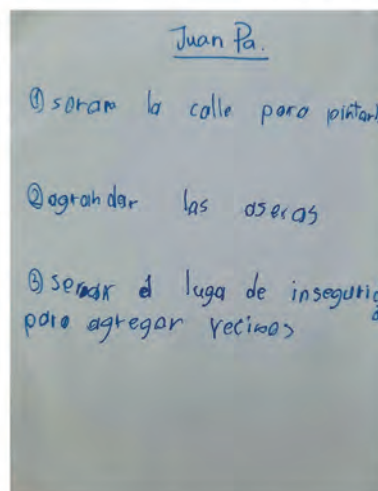 Juan Pa.
① soram la calle para pintarl
② agrandar las aseras
③ serrar el luga de insegurid
para agregar vecinos